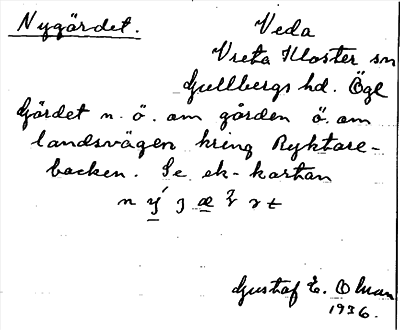 Nygärdet. Veda
Vreta Kloster sn
Gullbergs hd. Ögl
Gärdet n. ö. om gården ö. om
landsvägen kring Ryktare-
backen. Se ek-kartan
Gustaf E. Oman
1936.